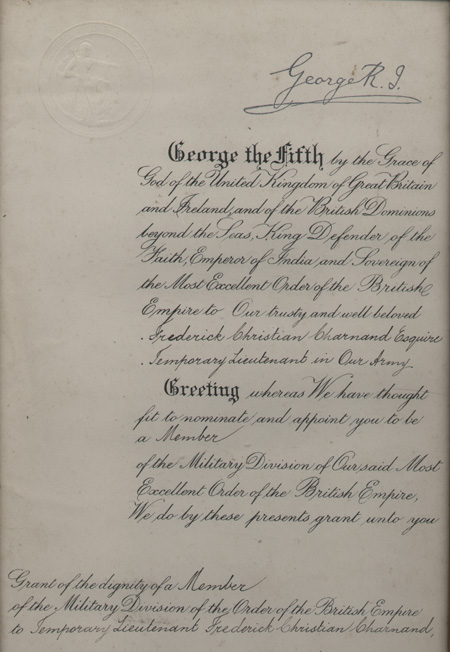 George R. I.
George the Fifth by the Grace of
God of the United Kingdom of Great Britain
and Ireland, and of the British Dominions
beyond the Seas, King Defender of the
Faith, Emperor of India, and Sovereign of
the Most Excellent Order of the British
Empire to Our trusty and well beloved
Frederick Christian Charnand Esquire
Temporary Lieutenant in Our Army
Greeting whereas We have thought
fit to nominate and appoint you to be
a Member
of the Military Division of Our said Most
Excellent Order of the British Empire,
We do by these presents grant unto you
Grant of the dignity of a Member
of the Military Division of the Order of the British Empire
to Temporary Lieutenant Frederick Christian Charnand,